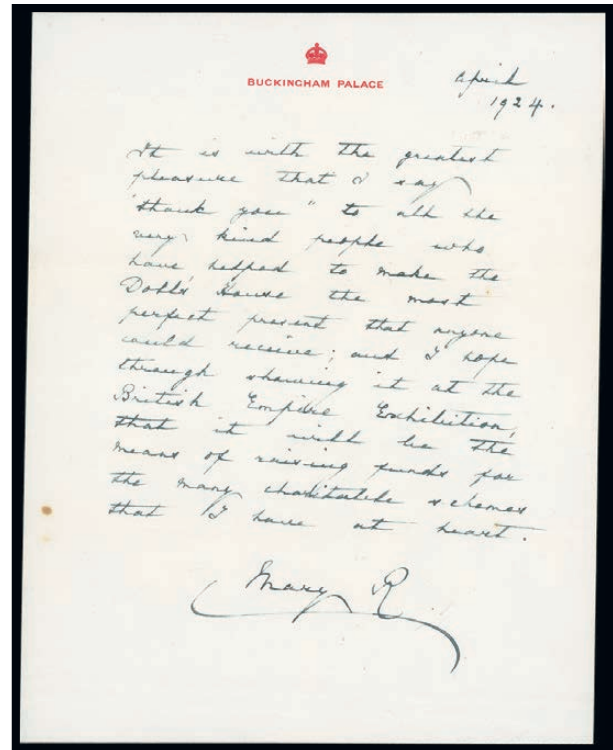 BUCKINGHAM PALACE
April
1924.
It is with the greatest
pleasure that I say
"thank you" to all the
very kind people who
have helped to make the
Dolls' House the most
perfect present that anyone
could receive; and I hope
through showing it at the
British Empire Exhibition,
that it will be the
means of raising funds for
the many charitable schemes
that I have at heart.
Mary R